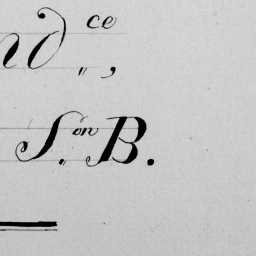 nd.ce,
S.on B.